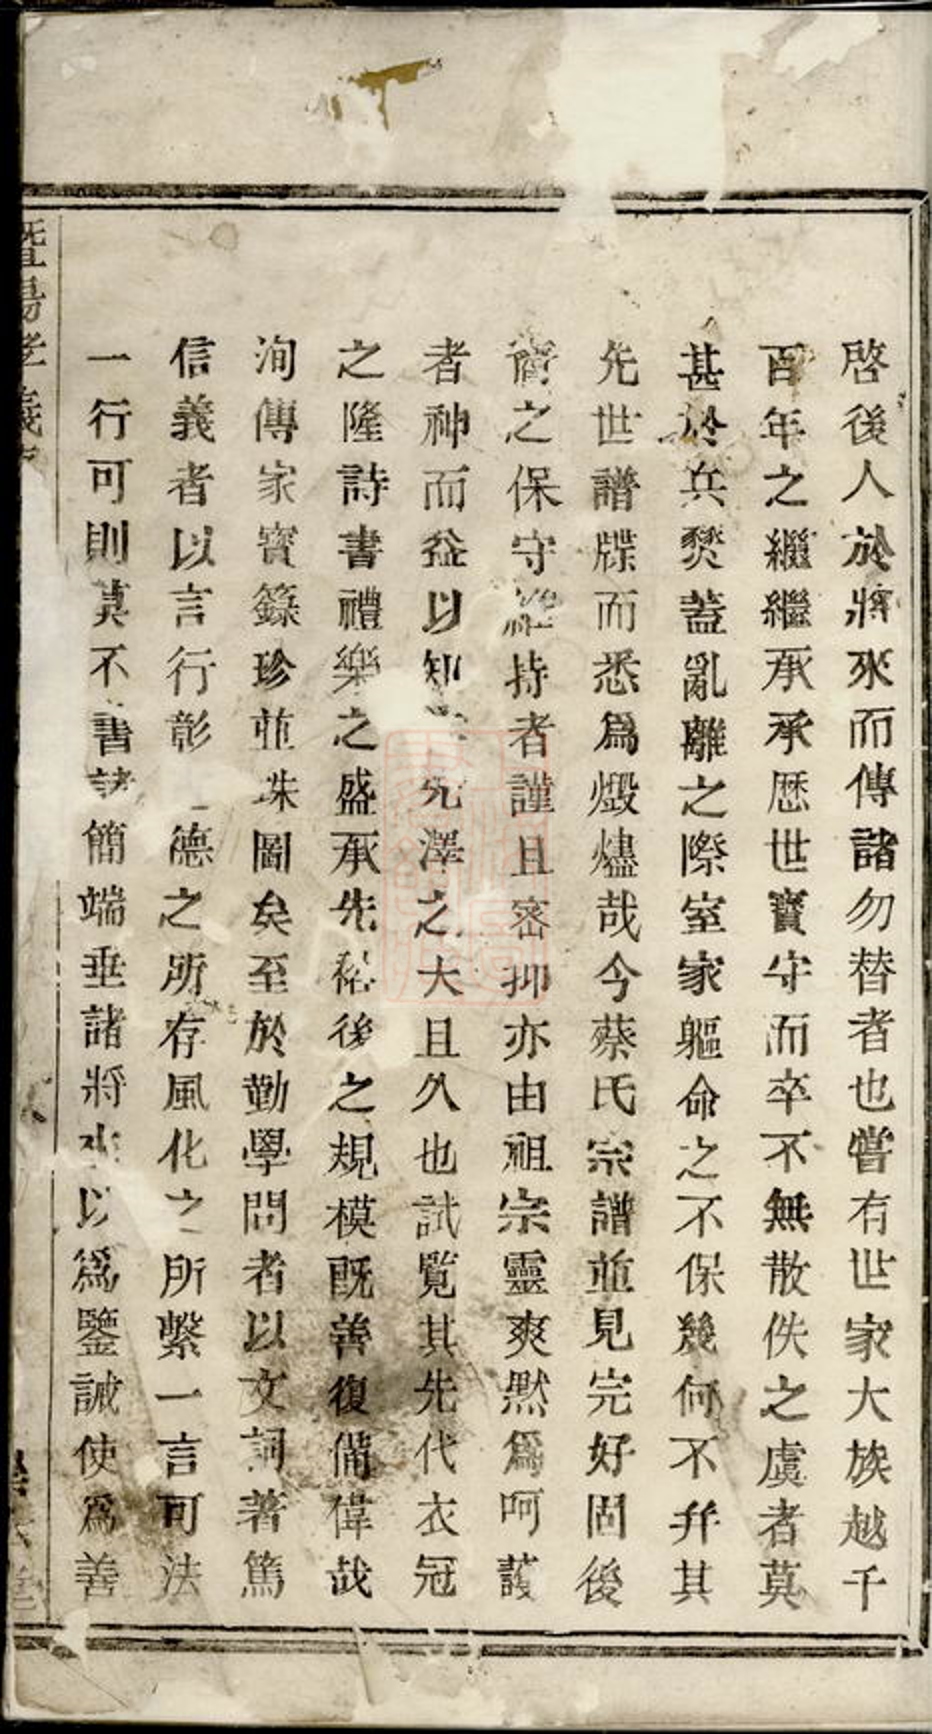 啓後人於將來而傳諸勿替者也嘗有世家大族越千
百年之繼繼承承歷世寶守而卒不無散佚之虞者莫
甚於兵燹蓋亂離之際室家軀命之不保幾何不弁其
先世譜牒而悉爲燬燼哉今蔡氏宗譜並見完好固後
裔之保守維持者謹且密抑亦由祖宗靈爽默爲呵護
者神而益以知先澤之大且久也試覧其先代衣冠
之隆詩書禮樂之盛承先裕後之規模既善復備偉哉
洵傳家寶籙珍並珠圖矣至於勤學問者以文詞著篤
信義者以言行彰德之所存風化之所繫一言可法
一行可則莫不書諸簡端垂諸將來以爲鑒誡使爲善
暨陽孝義